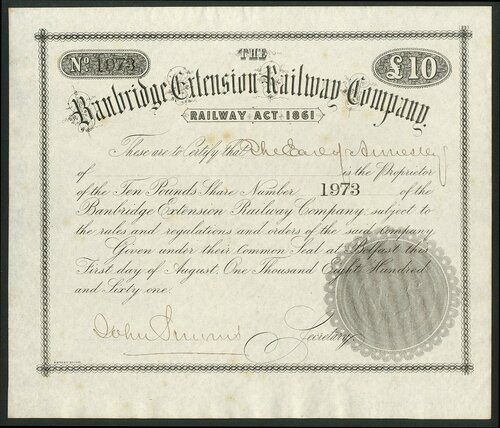 THE
No 1973
£10
Banbridge Extension Railway Company.
RAILWAY ACT 1861
These are to Certify that The Earl of Annesley
of is the Proprietor
of the Ten Pounds Share Number 1973 of the
Banbridge Extension Railway Company, subject to
the rules and regulations and orders of the said Company
Given under their Common Seal at Belfast this
First day of August, One Thousand Eight Hundred
and Sixty one.
John
Secretary.